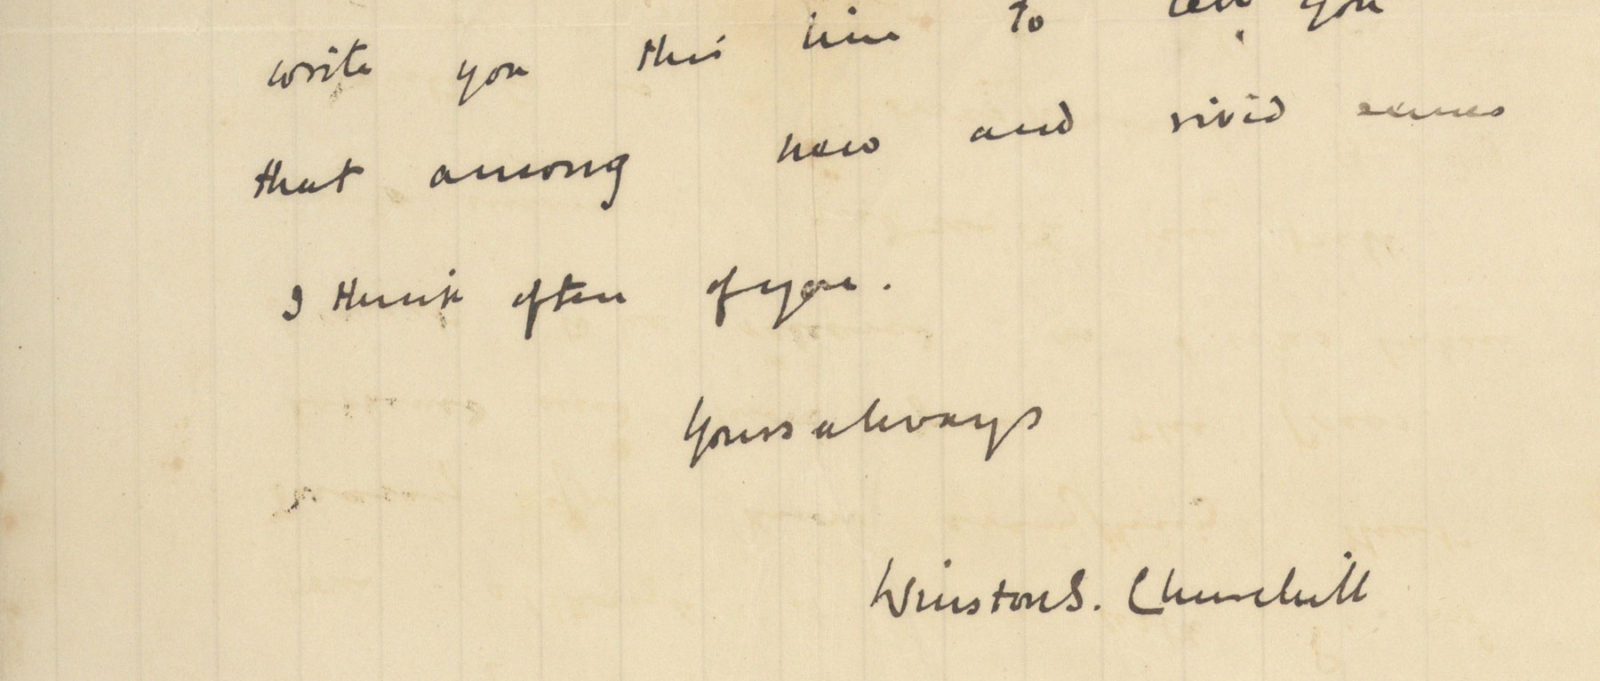 write you this line to tell you
that among new and vivid scenes
I think often of you.
Yours always
Winston S. Churchill